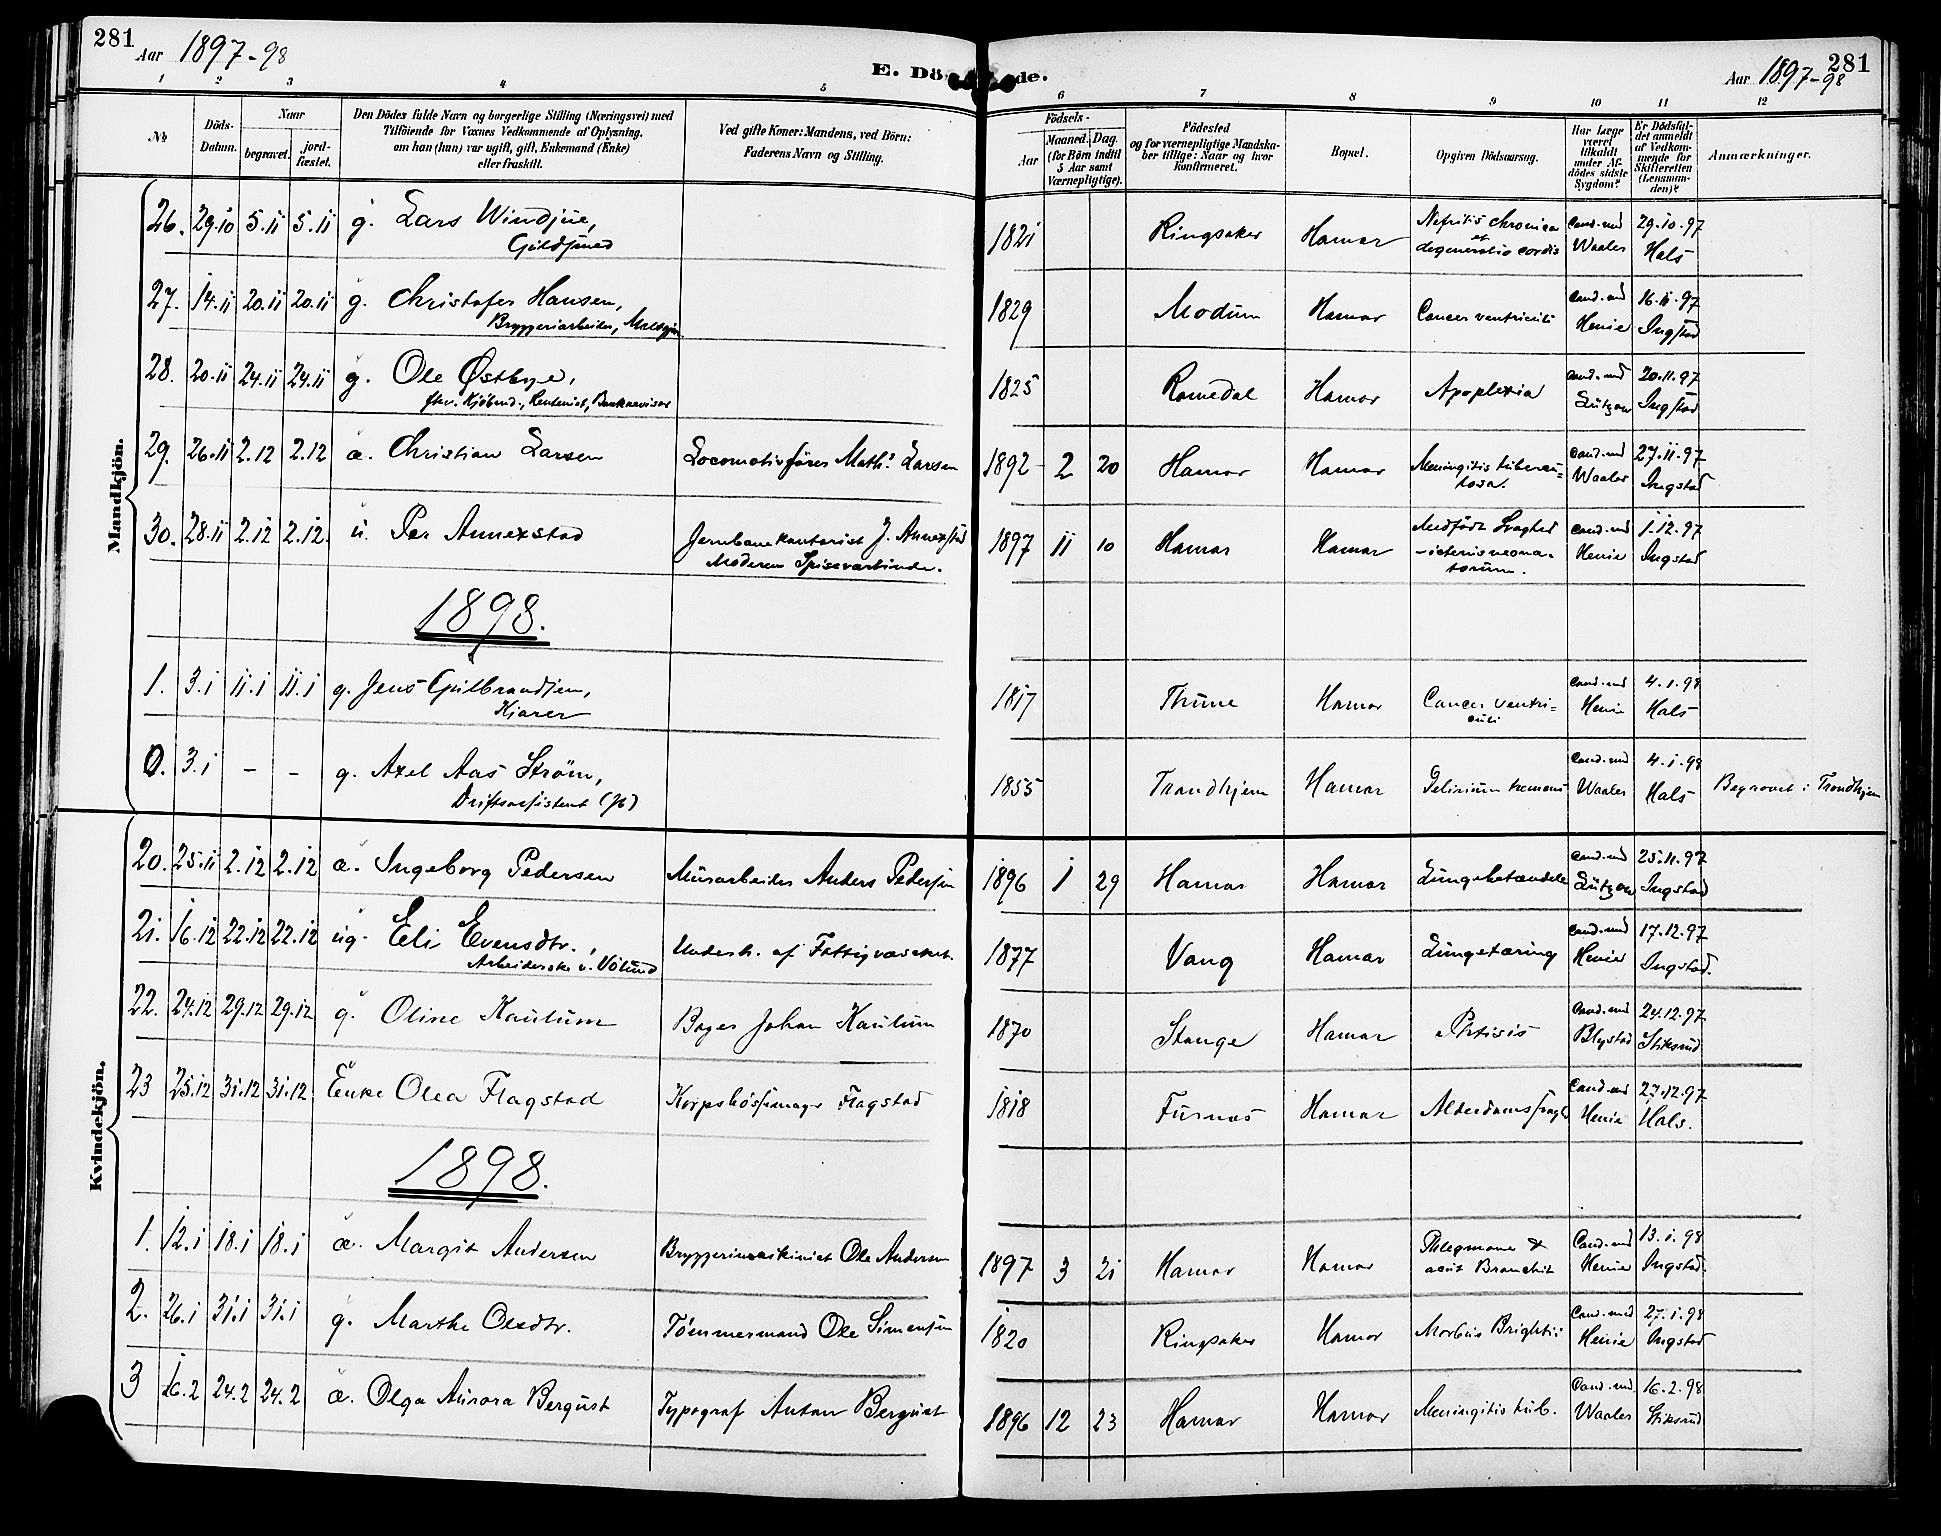 281
Aar 1897-98
E. Dö de.
281
Aar 1897-98
1 2 3 4 5 6 7 8 9 10 11 12
No
Döds-
Datum.
Naar
begravet.
jord-
fæstet.
Den Dödes fulde Navn og borgerlige Stilling (Næringsvei) med
Tilföiende for Voxnes Vedkommende af Oplysning,
om han (hun) var ugift, gift, Enkemand (Enke)
eller fraskilt.
Ved gifte Koner: Mandens, ved Börn:
Faderens Navn og Stilling.
Födsels-
Aar
Maaned. Dag.
(for Börn indtil
5 Aar samt
Værnepligtige).
Födested
og for værnepligtige Mandska-
ber tillige: Naar og hvor
konfirmeret.
Bopæl.
Opgiven Dödsaarsag.
Har Læge
været
tilkaldt
under Af-
dödes sidste
Sygdom?
Er Dödsfal-
det anmeldt
af Vedkom-
mende for
Skifteretten
(Lensman-
den)?
Anmærkninger.
Mandkjön.
26. 29.10 5.11 5.11 g. Lars Windjue, 1821 Ringsaker Hamar Nefritis chronica cand. med 29.10.97
Guldsmed et degeneratio cordis Waaler Hals
27. 14.11 20.11 20.11 g. Christofer Hansen, 1829 Modum Hamar Cancer ventriculi cand. med 16.11.97
Bryggeriarbeider, Henie Ingstad
28. 20.11 24.11 24.11 g. Ole Østbye, 1825 Romedal Hamar Apoplexia cand. med 20.11.97
fhv. Kjøbmd., Rentenist, Bankrevisor Lützow Ingstad
29. 26.11 2.12 2.12 æ. Christian Larsen Locomotivfører Math. Larsen 1892 2 20 Hamar Hamar Meningitis tubercu= cand. med 27.11.97
losa. Waaler Ingstad
30. 28.11 2.12 2.12. u. Per Annexstad Jernbanekontorist J. Annexstad 1897 11 10 Hamar Hamar Medfödt Svaghed cand. med 1.12.97
Moderen Spiseværtinde. - icterus neona- Henie Ingstad
torum.
1898.
1. 3.1 11.1 11.1 g. Jens Gulbrandsen, 1817 Thune Hamar Cancer ventri= cand. med 4.1.98
Kjører culi Henie Hals
0. 3.1 - - g. Axel Aas Strøm, 1855 Trondhjem Hamar Delirium tremens Cand. med 4.1.98
Driftsassistent Waaler Hals Begravet i Trondhjem
Kvindekjön.
20. 25.11 2.12 2.12 æ. Ingeborg Pedersen Murarbeider Anders Pedersen 1896 1 29 Hamar Hamar Lungebetændelse cand. med 25.11.97
Lützow Ingstad
21. 16.12 22.12 22.12 ug. Eli Evensdtr., Underst. af Fattigvæsenet. 1877 Vang Hamar Lungetæring cand. med 17.12.97
Arbeiderske v. Vølund Henie Ingstad.
22. 24.12 29.12 29.12 g. Oline Kaulum Bager Johan Kaulum 1870 Stange Hamar Phtisis Cand. med 24.12.97
Blystad Stiksrud
23 25.12 31.12 31.12 Enke Olea Flagstad Flagstad 1818 Furnæs Hamar Alderdomssvaghd Cand. med 27.12.97
Henie Hals.
1898.
1. 12.1 18.1 18.1 æ. Margit Andersen Bryggerimaskinist Ole Andersen 1897 3 21 Hamar Hamar Phlegmone & Cand. med 13.1.98
acut Bronchit Henie Ingstad.
2. 26.1 31.1 31.1 g. Marthe Olsdtr. Tömmermand Ole Simensen 1820 Ringsaker Hamar Morbus Brightii Cand. med 27.1.98
Henie Ingstad
3 16.2 24.2 24.2 æ. Olga Aurora Berqust Typograf Anton Berqust 1896 12 23 Hamar Hamar Meningitis tub. Cand. med 16.2.98
Waaler Stiksrud